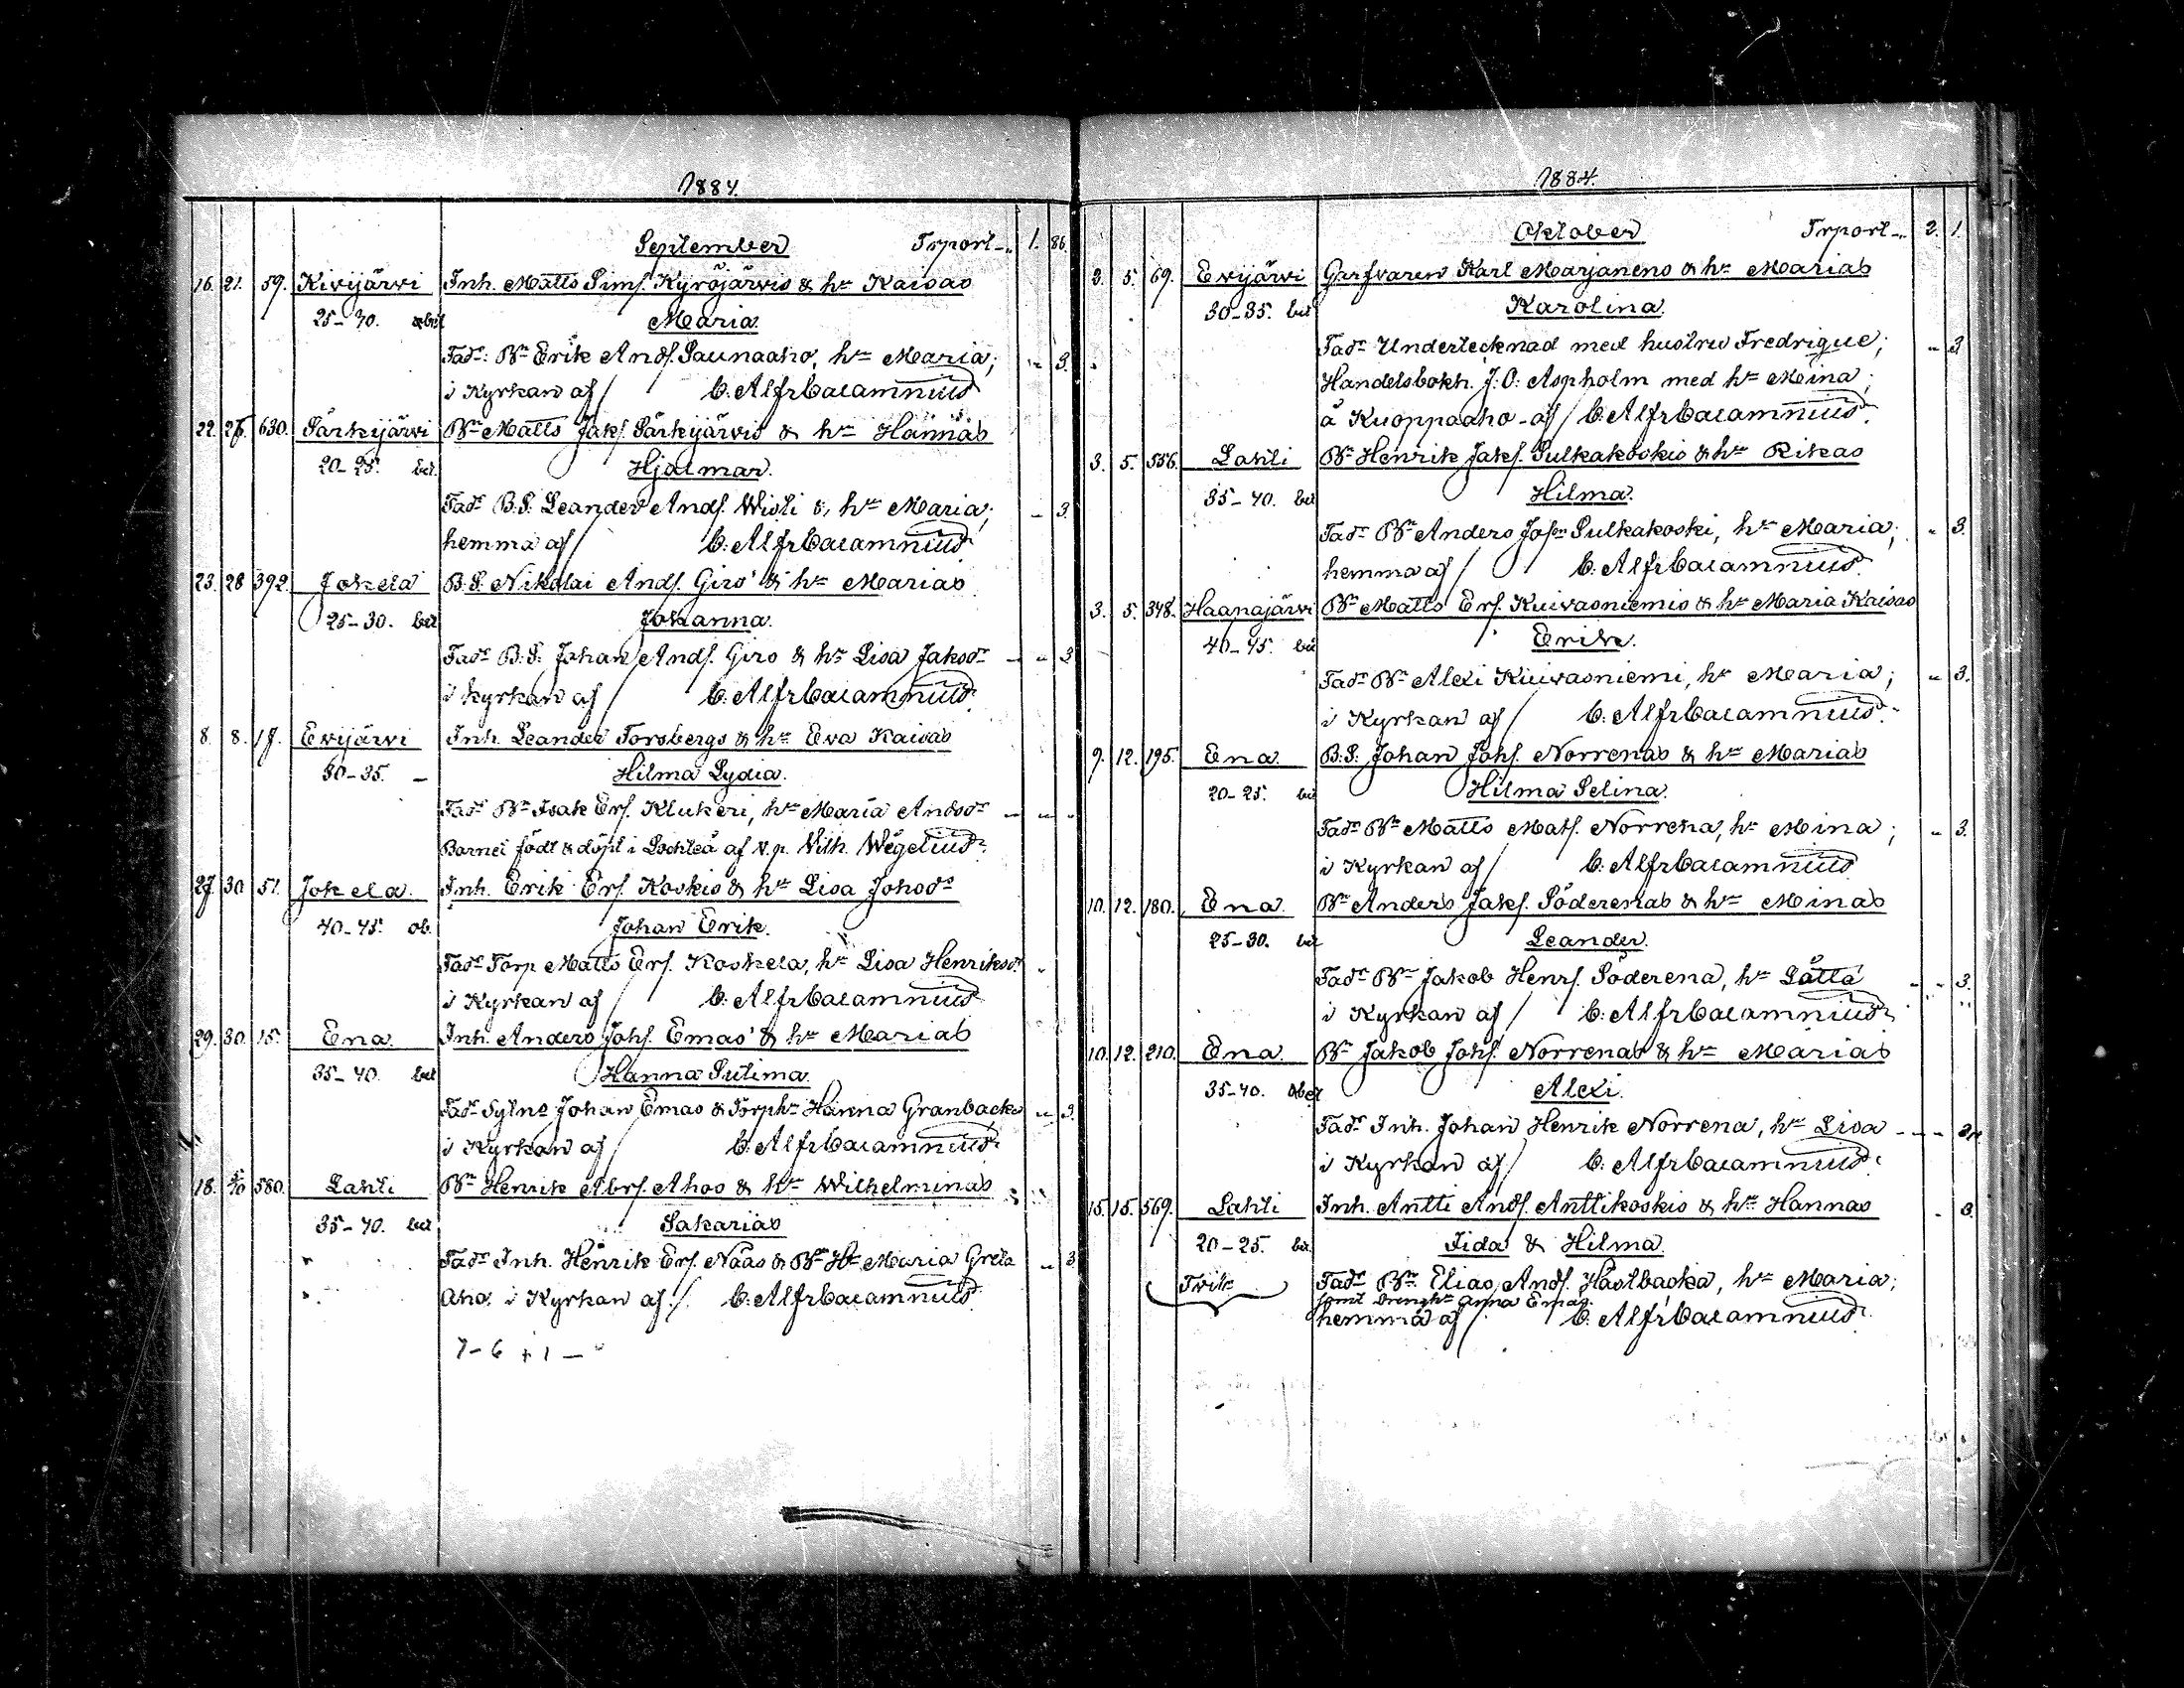 1884.
September Trport-.. 1. 86.
16. 21. 59. Kivijärvi Inh. Matts Simſ. Kyröjärvis & hu Kaisas
25-40. Maria.
Fadr: Bn Erik Andſ. Saunaaho, hu Maria; " 3.
i Kyrkan af / C. Alfr Calamnius
22. 28. 630. Särkijärvi Bn Matts Jakſ. Särkijärvis & hu Hannas
20-25. bet. Hjalmar.
Fadr B.S. Leander Andſ. Wisti &, hu Maria; " 3.
hemma af / C. Alfr Calamnius
23. 28 392. Jokela B.S. Nikolai Andſ. Giro's & hu Marias
25-30. bet Johanna.
Fadr B.S. Johan Andſ. Giro & hu Lisa Jakodr - " 3
i kyrkan af / C. Alfr Calamnius
8. 8. 17. Evijärvi Inh. Leander Forsbergs & hu Eva Kaisas
30-35. - Hilma Lydia.
Fadr Bn Isak Erſ. Klukeri, hu Maria Andsdr - " "
Barnet födt & döpt i Lochteå af v.p. Vilh. Wegelius
27 30 51. Jokela. Inh. Erik Erſ. Koskis & hu Lisa Johsdr
40-45. ob. Johan Erik.
Fadr Torp Matts Erſ. Koskela, hu Lisa Henriksdr "
i Kyrkan af / C. Alfr Calamnius
29. 30. 15. Ena. Inh. Anders Johſ. Emas' & hu Marias
35-40. bet Hanna Sutima.
Fadr Sytng Johan Emas & Torphu Hanna Granbacka " 3.
i Kyrkan af / C. Alfr Calamnius
18. 5/10 580. Lahti Bn Henrik Abrſ. Ahos & hu Wilhelminas
35-40. bet Sakarias
Fadr Inh. Henrik Erſ. Näas & Bn Hu Maria Greta " 3
Aho. i Kyrkan af ./. C. Alfr Calamnius
7-6 + 1 -
1884.
Oktober Trport-.. 2. 1.
2. 5. 69. Evijärvi Garfvaren Karl Marjanens & hu Marias
30-35. bet Karolina.
Fadr Undertecknad med hustru Fredrique; " 3
Handelsbokh. J.O. Aspholm med hu Mina;
å Kuoppaaho - af / C. Alfr Calamnius
3. 5. 556. Lahti Bn Henrik Jakſ. Sulkakoskis & hu Rikas
35-40. bet Hilma.
Fadr Bn Anders Josſ Sulkakoski, hu Maria; " 3.
hemma af / C. Alfr Calamnius
3. 5. 348. Haanajärvi Bn Matts Erſ. Kuivasniemis & hu Maria Kaisas
40-45. bet Erik.
Fadr Bn Alexi Kuivasniemi, hu Maria; " 3.
i Kyrkan af / C. Alfr Calamnius
9. 12. 195. Ena. B.S. Johan Johſ. Norrenas & hu Marias
20-25. bet Hilma Selina.
Fadr Bn Matts Matſ. Norrena, hu Mina; " 3.
i Kyrkan af / C. Alfr Calamnius
10. 12. 180. Ena. Bn Anders Jakſ. Söderenas & hu Minas
25-30. bet Leander.
Fadr Bn Jakob Henrſ. Söderena, hu Låtta - " 3.
i Kyrkan af / C. Alfr Calamnius
10. 12. 210. Ena. Bn Jakob Johſ. Norrenas & hu Marias
35-40. Alexi.
Fadr Inh. Johan Henrik Norrena, hu Lisa - - "
i Kyrkan af / C. Alfr Calamnius
15. 15. 569. Lahti Inh. Antti Andſ. Anttikoskis & hu Hannas " 3.
20-25. bet Iida & Hilma.
Tvik. Fadr Bn. Elias Andſ. Hästbacka, hu Maria;
samt Drenghu Anna Emas.
hemma af / C. Alfr Calamnius